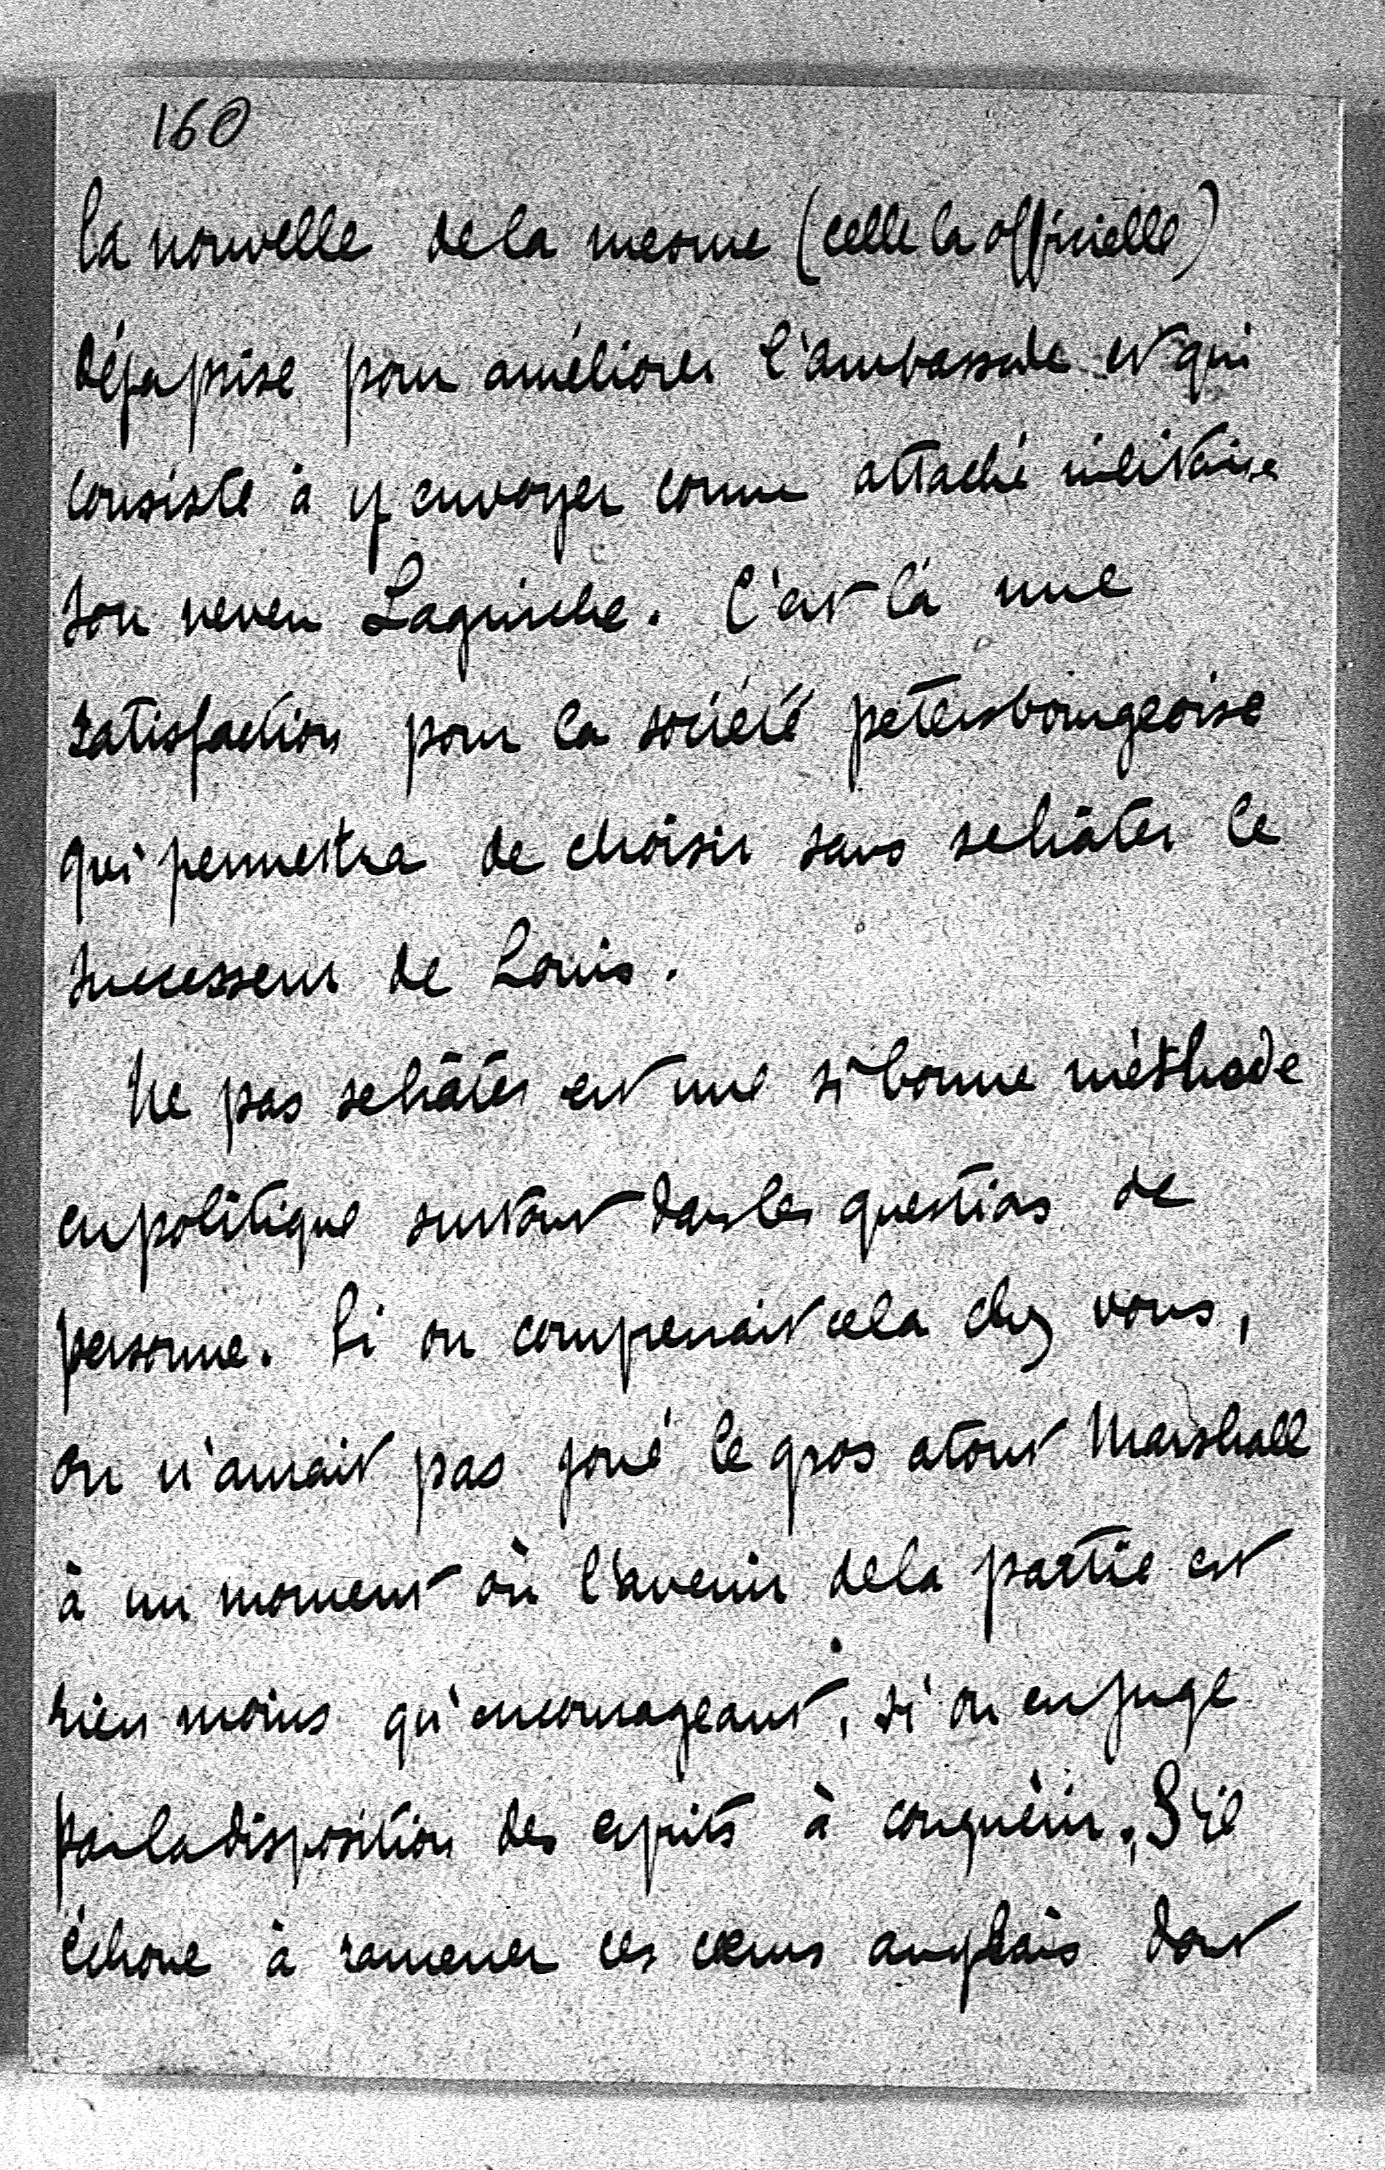 160
la nouvelle de la mesure (celle la officielle)
déja prise pour améliorer l'ambassade et qui
consiste à y envoyer comme attaché militaire
son neveu Laguiche. C'est là une
satisfaction pour la société petersbourgeoise
qui permettra de choisir sans se hâter le
successeur de Louis.
Ne pas se hâter est une si bonne méthode
en politique surtout dans les questions de
personne. Si on comprenait cela chez vous,
on n'aurait pas joué le gros atout Marshall
à un moment où l'avenir de la partie est
rien moins qu'encourageant, si on en juge
par la disposition des esprits à conquérir. S'il
échoue à ramener ces cœurs anglais dont